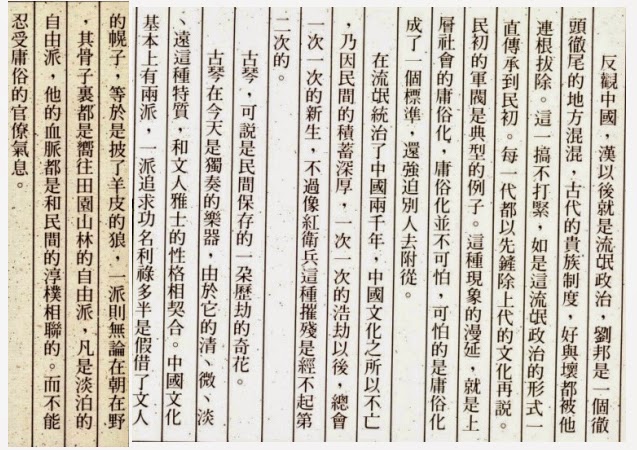 反觀中國，漢以後就是流氓政治，劉邦是一個徹
頭徹尾的地方混混，古代的貴族制度，好與壞都被他
連根拔除。這一搞不打緊，如是這流氓政治的形式一
直傳承到民初。每一代都以先鏟除上代的文化再說。
民初的軍閥是典型的例子。這種現象的漫延，就是上
層社會的庸俗化，庸俗化並不可怕，可怕的是庸俗化
成了一個標準，還強迫別人去附從。
在流氓統治了中國兩千年，中國文化之所以不亡
，乃因民間的積蓄深厚，一次一次的浩劫以後，總會
一次一次的新生，不過像紅衛兵這種摧殘是經不起第
二次的。
古琴，可說是民間保存的一朶歷劫的奇花。
古琴在今天是獨奏的樂器，由於它的清、微、淡
、遠這種特質，和文人雅士的性格相契合。中國文化
基本上有兩派，一派追求功名利祿多半是假借了文人
的幌子，等於是披了羊皮的狼，一派則無論在朝在野
，其骨子裏都是嚮往田園山林的自由派，凡是淡泊的
自由派，他的血脈都是和民間的淳樸相聯的。而不能
忍受庸俗的官僚氣息。